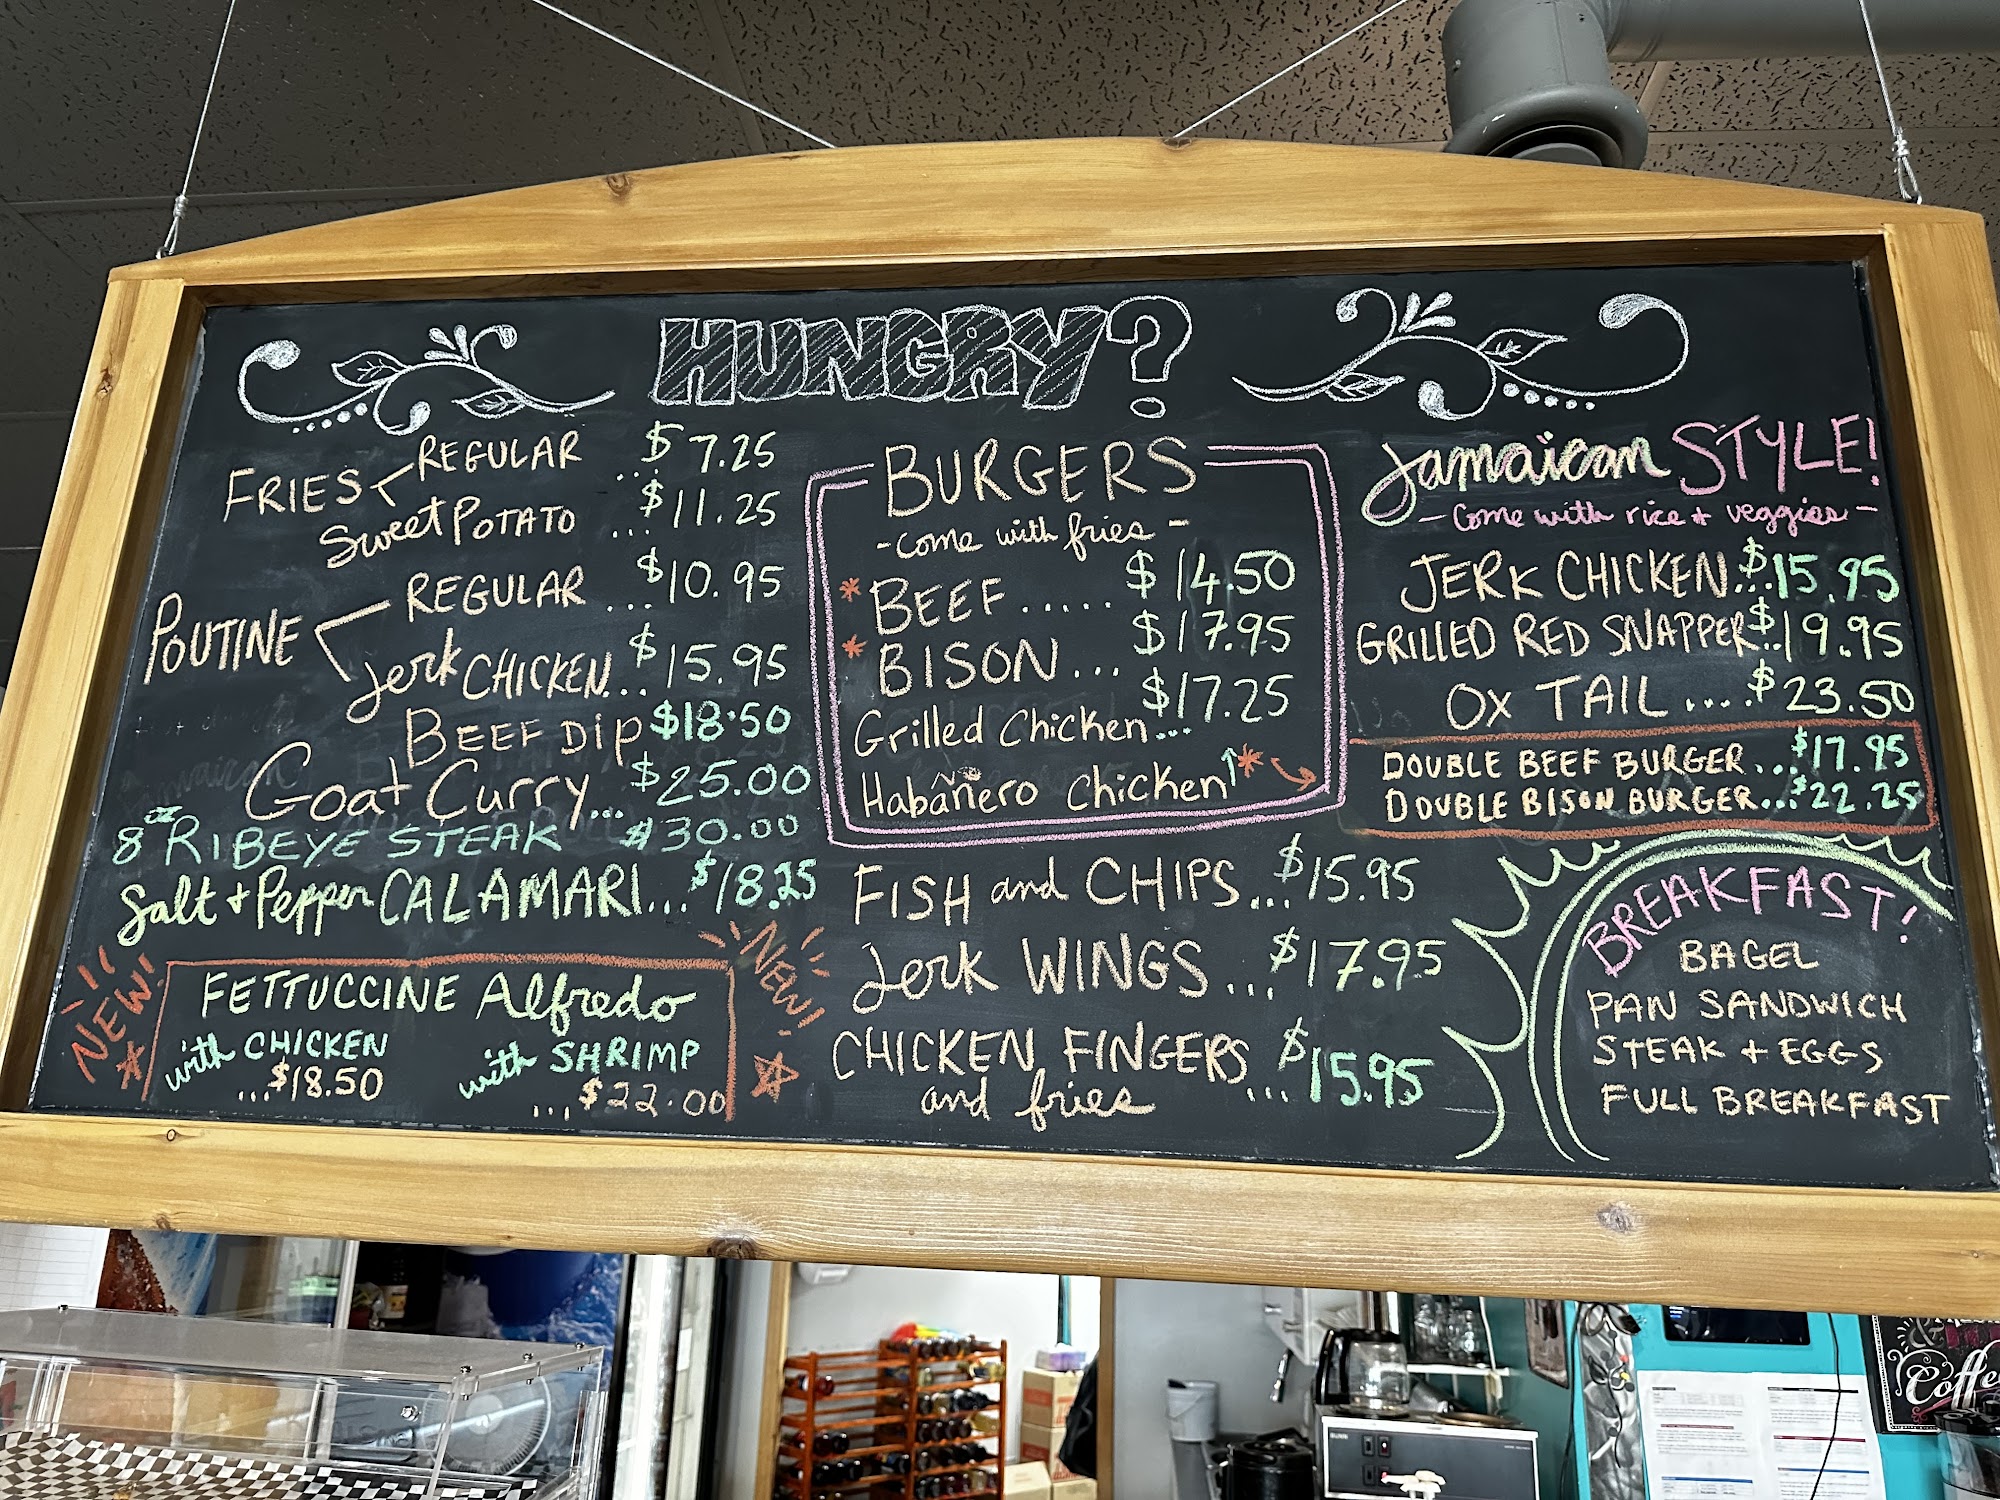 HUNGRY?
FRIES REGULAR ... $7.25
Sweet POTATO ... $11.25
POUTINE REGULAR ... $10.95
Jerk CHICKEN... $15.95
BEEF DIP $18.50
Goat Curry... $25.00
8oz RIBEYE STEAK $30.00
Salt + Pepper CALAMARI... $18.25
NEW!
NEW!
FETTUCCINE Alfredo
with CHICKEN
...$18.50
with SHRIMP
...$22.00
BURGERS
- come with fries -
* BEEF ..... $14.50
* BISON ... $17.95
Grilled Chicken... $17.25
Habañero Chicken ↑ * →
FISH and CHIPS... $15.95
Jerk WINGS... $17.95
CHICKEN FINGERS ... $15.95
and fries
Jamaican STYLE!
- Come with rice + veggies -
JERK CHICKEN... $15.95
GRILLED RED SNAPPER.. $19.95
OX TAIL .... $23.50
DOUBLE BEEF BURGER... $17.95
DOUBLE BISON BURGER... $22.25
BREAKFAST!
BAGEL
PAN SANDWICH
STEAK + EGGS
FULL BREAKFAST
BUNN